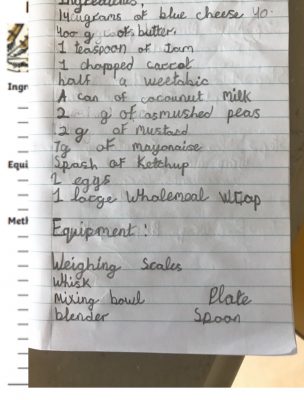 Ingredients,
14 ougrams of blue cheese yo.
400 g of butter.
1 teaspoon of Jam
1 chopped carrot
half a weetabic
A can of cocounut milk
2 g of asmushed peas
2 g of mustard
7g of mayonaise
Spash of Ketchup
2 eggs
1 large wholemeal wrap
Equipment:
Weighing Scales
Whisk
Mixing bowl Plate
blender Spoon
Ingr
Equi
Met